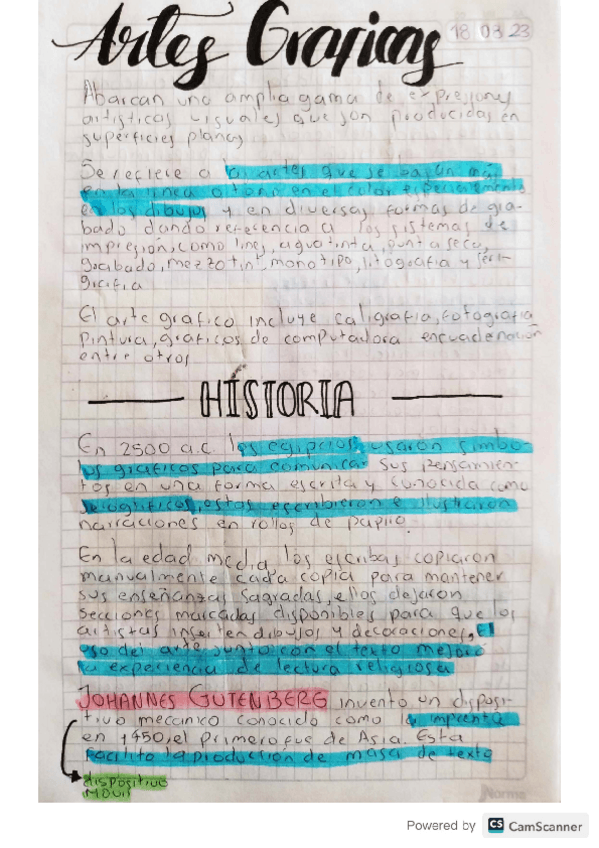 Artes Graficas 18 03 23
Abarcan una amplia gama de expresiones
artisticas visuales que son producidas en
superficies planas
Se refiere a las artes que se basan más
en la linea o tono en el color especialmente
en los dibujos y en diversas formas de gra-
bado dando referencia a los sistemas de
impresión, como lines, aguatinta, punta seca,
grabado, mezzotint, monotipo, litografia y seri-
grafia
El arte grafico incluye caligrafia, fotografia
pintura, graficos de computadora encuadernación
entre otros
HISTORIA
En 2500 a.c. los egipcios, usaron simbo-
los graficos para comunicar sus pensamien-
tos en una forma escrita y conocida como
estos escribieron e ilustraron
narraciones en rollos de papiro.
En la edad media los escribas copiaron
manualmente cada copia para mantener
sus enseñanzas sagradas, ellos dejaron
secciones marcadas disponibles para que los
artistas inserten dibujos y decoraciones, El
uso del arte junto con el texto mejoro
la experiencia de lectura religiosa
JOHANNES GUTENBERG invento un disposi-
tivo mecanico conocido como la imprenta
en 1450, el primero fue de Asia. Esta
facilito la producción de masa de texto
dispositivo
Norma
Powered by CS CamScanner